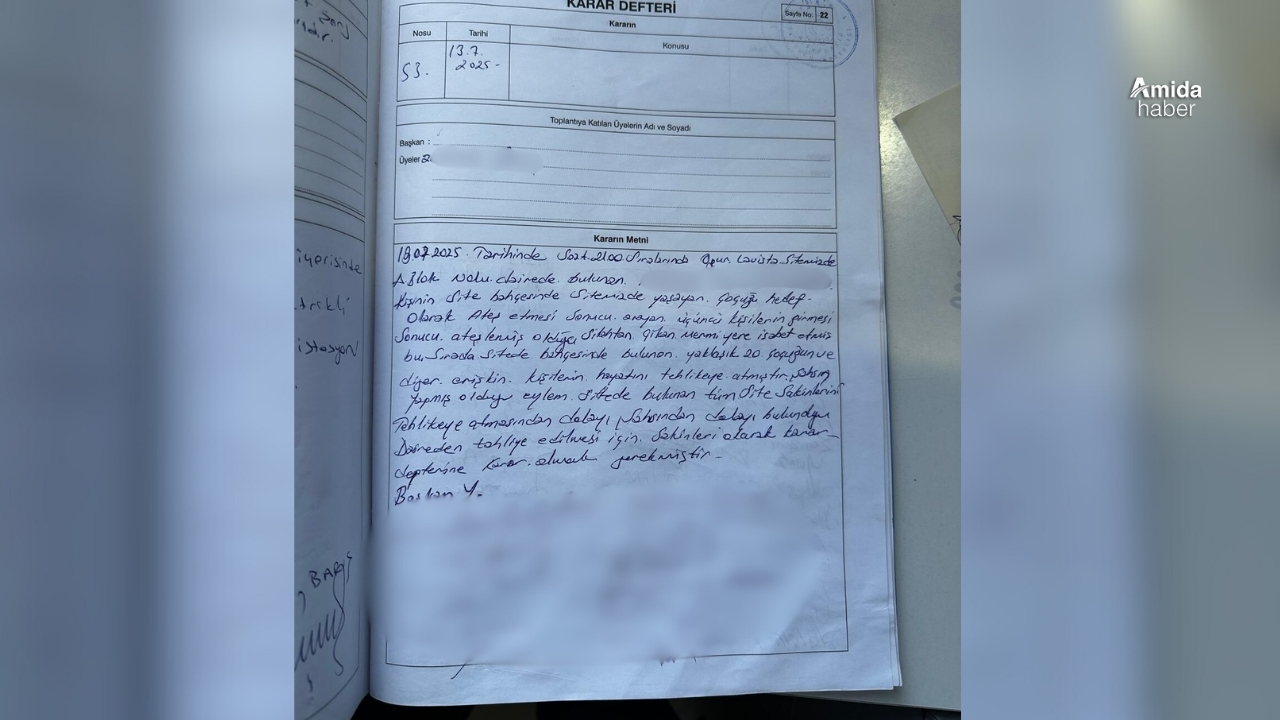 KARAR DEFTERİ
Sayfa No: 22
Kararın
Nosu
Tarihi
Konusu
53.
13.7.
2025-
Toplantıya Katılan Üyelerin Adı ve Soyadı
Başkan :
Üyeler
Kararın Metni
Tarihinde Saat 2100 Sıralarında Lavista Sitemizde
A Blok Nolu dairede bulunan
Kişinin Site bahçesinde Sitemizde yaşayan çocuğu hedef
olarak Ateş etmesi Sonucu. araya üçüncü kişilerin girmesi
Sonucu. ateşlenmiş olduğu Silahtan Çıkan mermi yere isabet etmiş
bu Sırada Sitede bahçesinde bulunan. yaklaşık 20 çocuğun ve
diğer erişkin. kişilerin hayatını tehlikeye atmıştır. şahsın
yapmış olduğu eylem. Sitede bulunan tüm Site Sakinlerini
Tehlikeye atmasından dolayı şahsından dolayı bulunduğu
Daireden tahliye edilmesi için. Sakinleri olarak karar
defterine karar. almak gerekmiştir-
Başkan Y.
içerisinde
istasyon
BARIŞ
Amida
haber